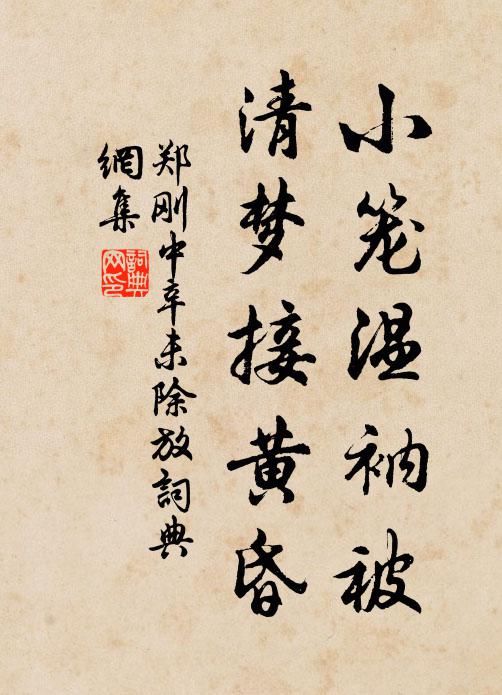 小笼温衲被
清梦接黄昏
郑刚中辛未除放词典
網集
詞典网印